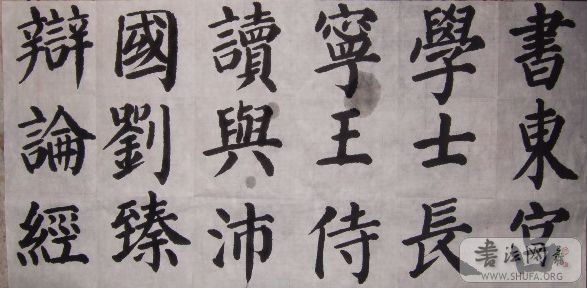 書東宮
學士長
寧王侍
讀與沛
國劉臻
辯論經
書法网
WWW.SHUFA.ORG